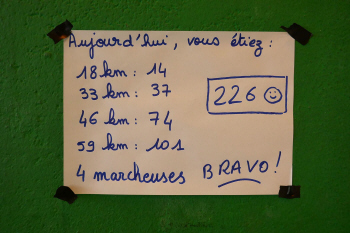 Aujourd'hui, vous étiez :
18 km : 14
33 km : 37
226 ☺
46 km : 74
59 km : 101
4 marcheuses BRAVO !